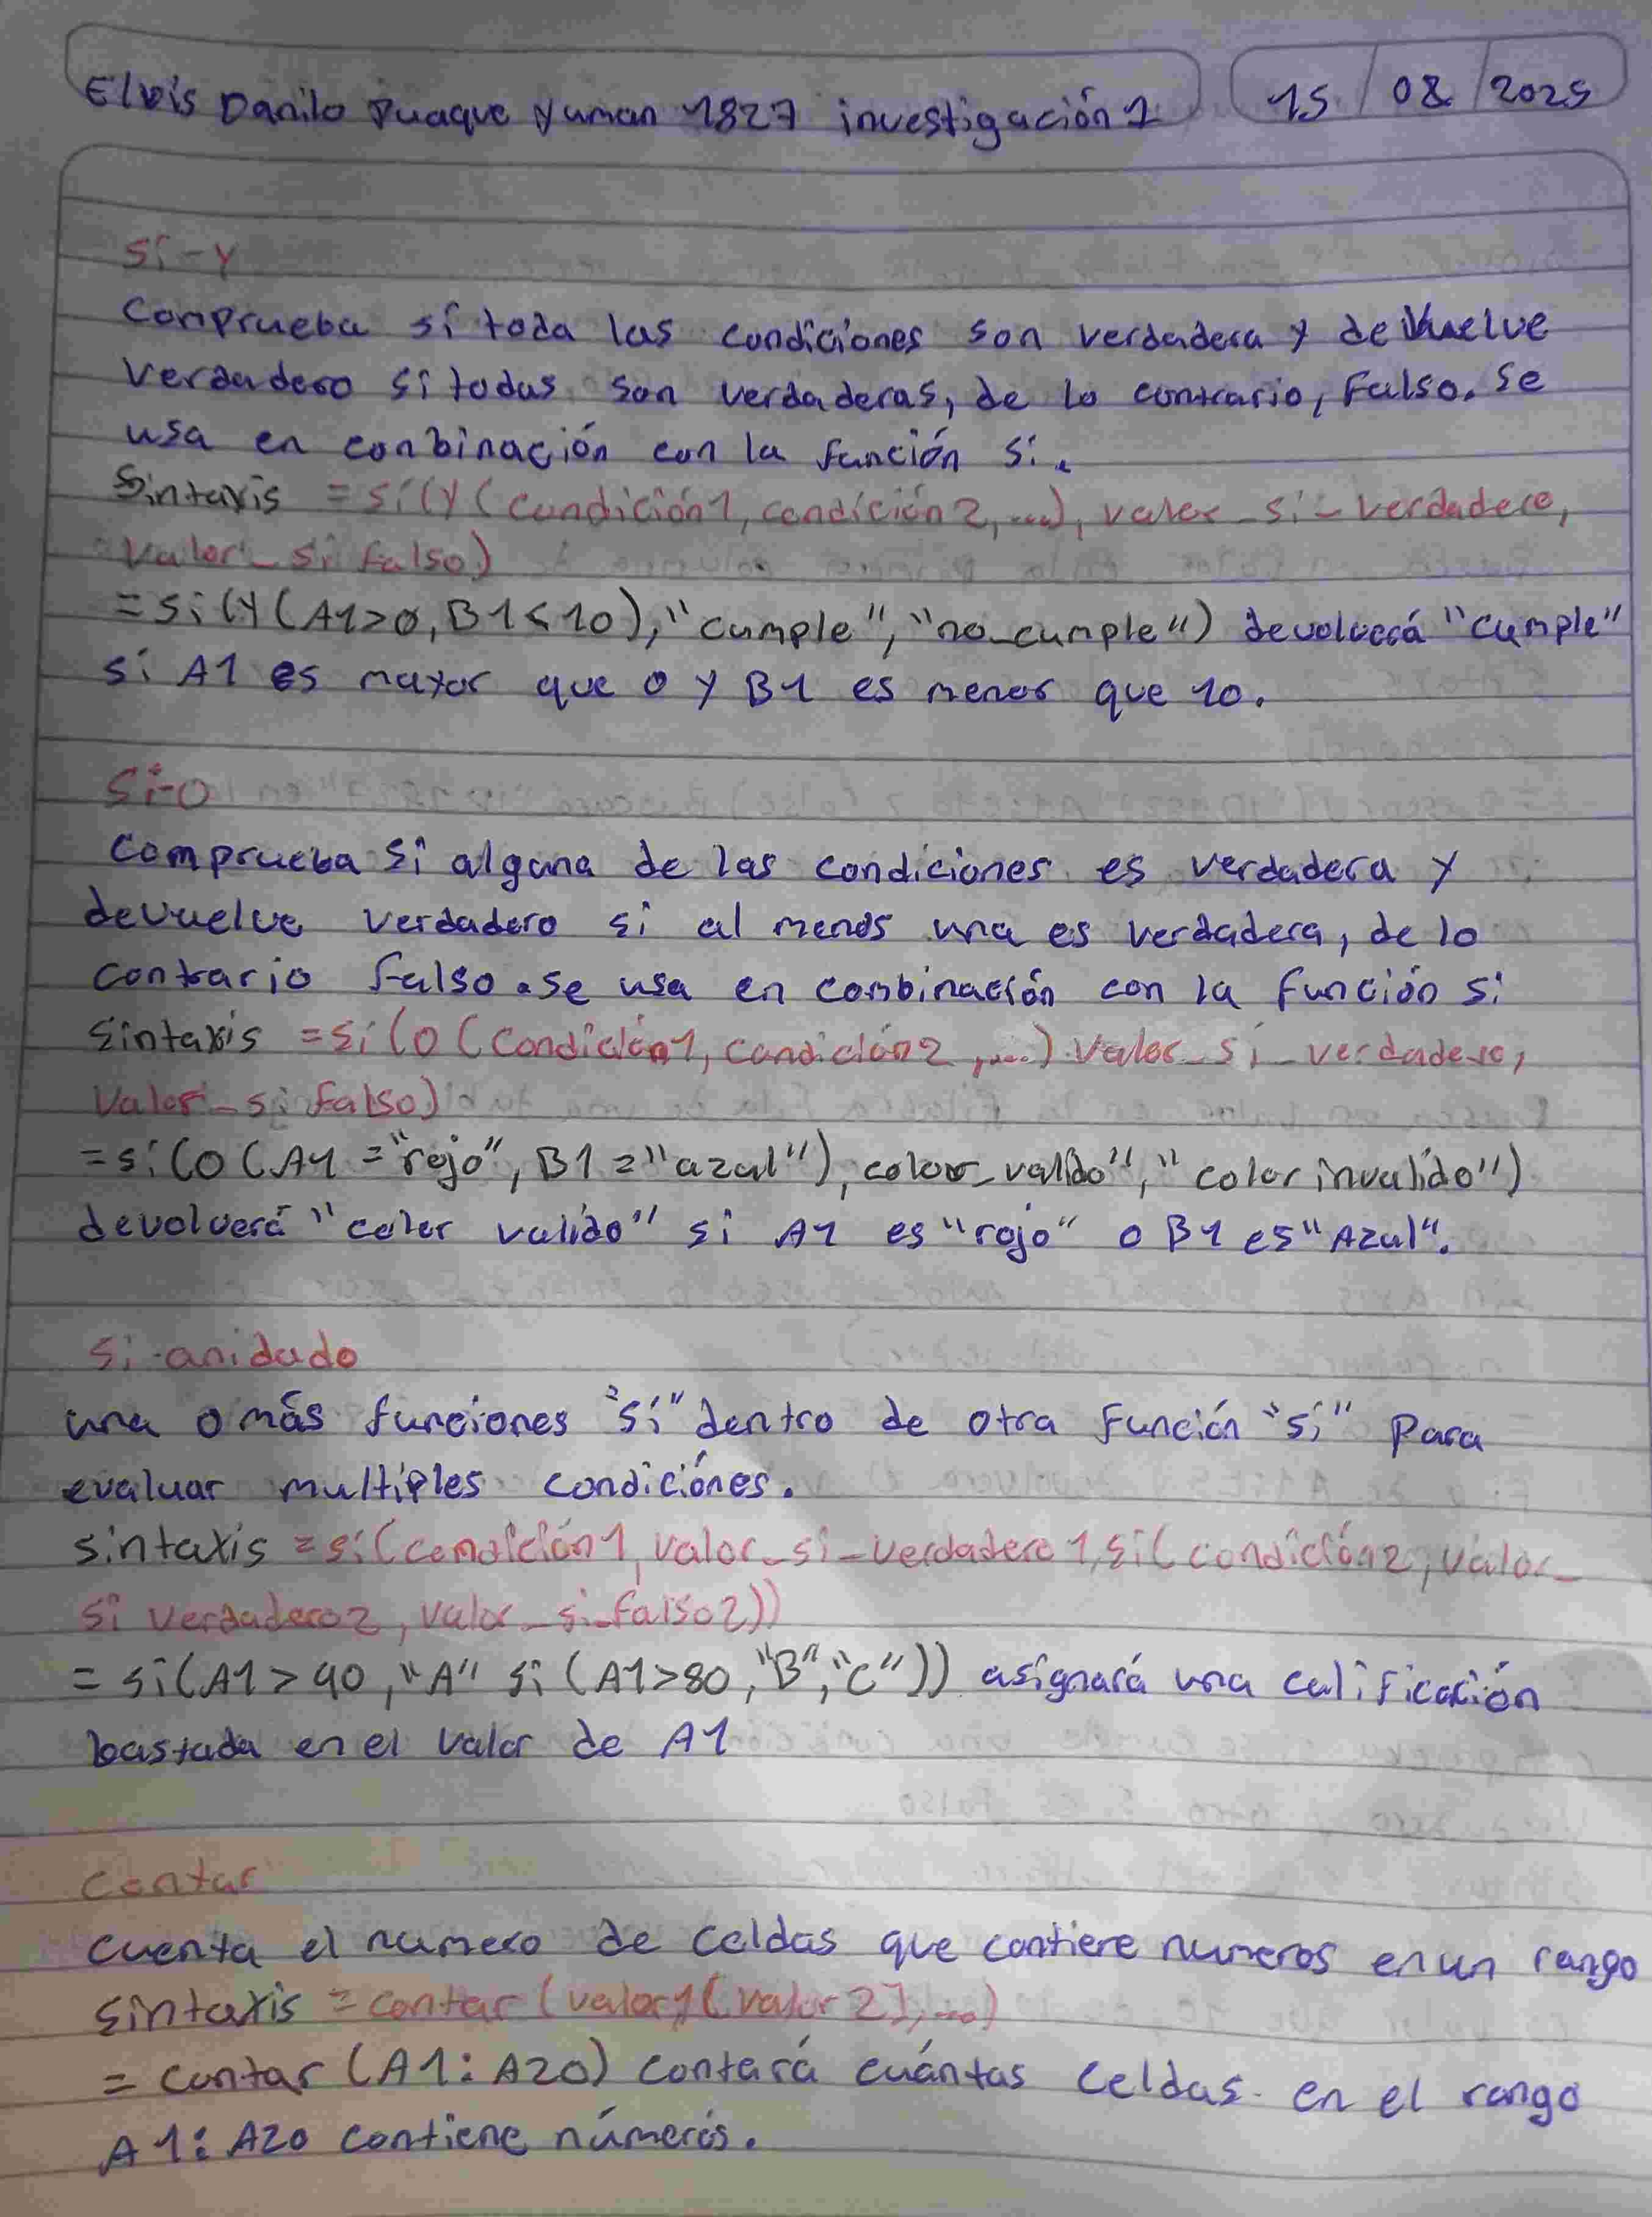 Elvis Danilo Puaque Yuman 1827 investigación 1
15 / 08 / 2025
Si-Y
Comprueba si toda las condiciones son verdadera y devuelve
Verdadero si todas son verdaderas, de lo contrario, Falso. Se
usa en conbinación con la función Si.
Sintaxis =Si(Y(Condición1, condición2,...), valor_si_verdadero,
Valor_si falso)
=Si(Y(A1>0, B1<10), "cumple", "no_cumple") devolverá "cumple"
si A1 es mayor que 0 y B1 es menor que 10.
Si-O
Comprueba si alguna de las condiciones es verdadera y
devuelve verdadero si al menos una es verdadera, de lo
contrario falso. Se usa en combinación con la función Si
Sintaxis =Si(O(Condición1, condición2,...) Valor_si_verdadero,
Valor_si falso)
=Si(O(A1="rojo", B1="azul"), color_valido", "color invalido")
devolverá "color valido" si A1 es "rojo" o B1 es "Azul".
Si-anidado
una o más funciones "Si" dentro de otra función "Si" Para
evaluar multiples condiciónes.
sintaxis =Si(condición1, valor_si_verdadero1, Si(condición2, valor_
si verdadero2, valor_si_falso2))
=Si(A1>90,"A" Si(A1>80,"B","C")) asignará una calificación
bastada en el valor de A1
Contar
cuenta el numero de celdas que contiene numeros en un rango
Sintaxis =contar(valor1(valor2],...)
=contar(A1:A20) contará cuántas celdas en el rango
A1:A20 contiene números.